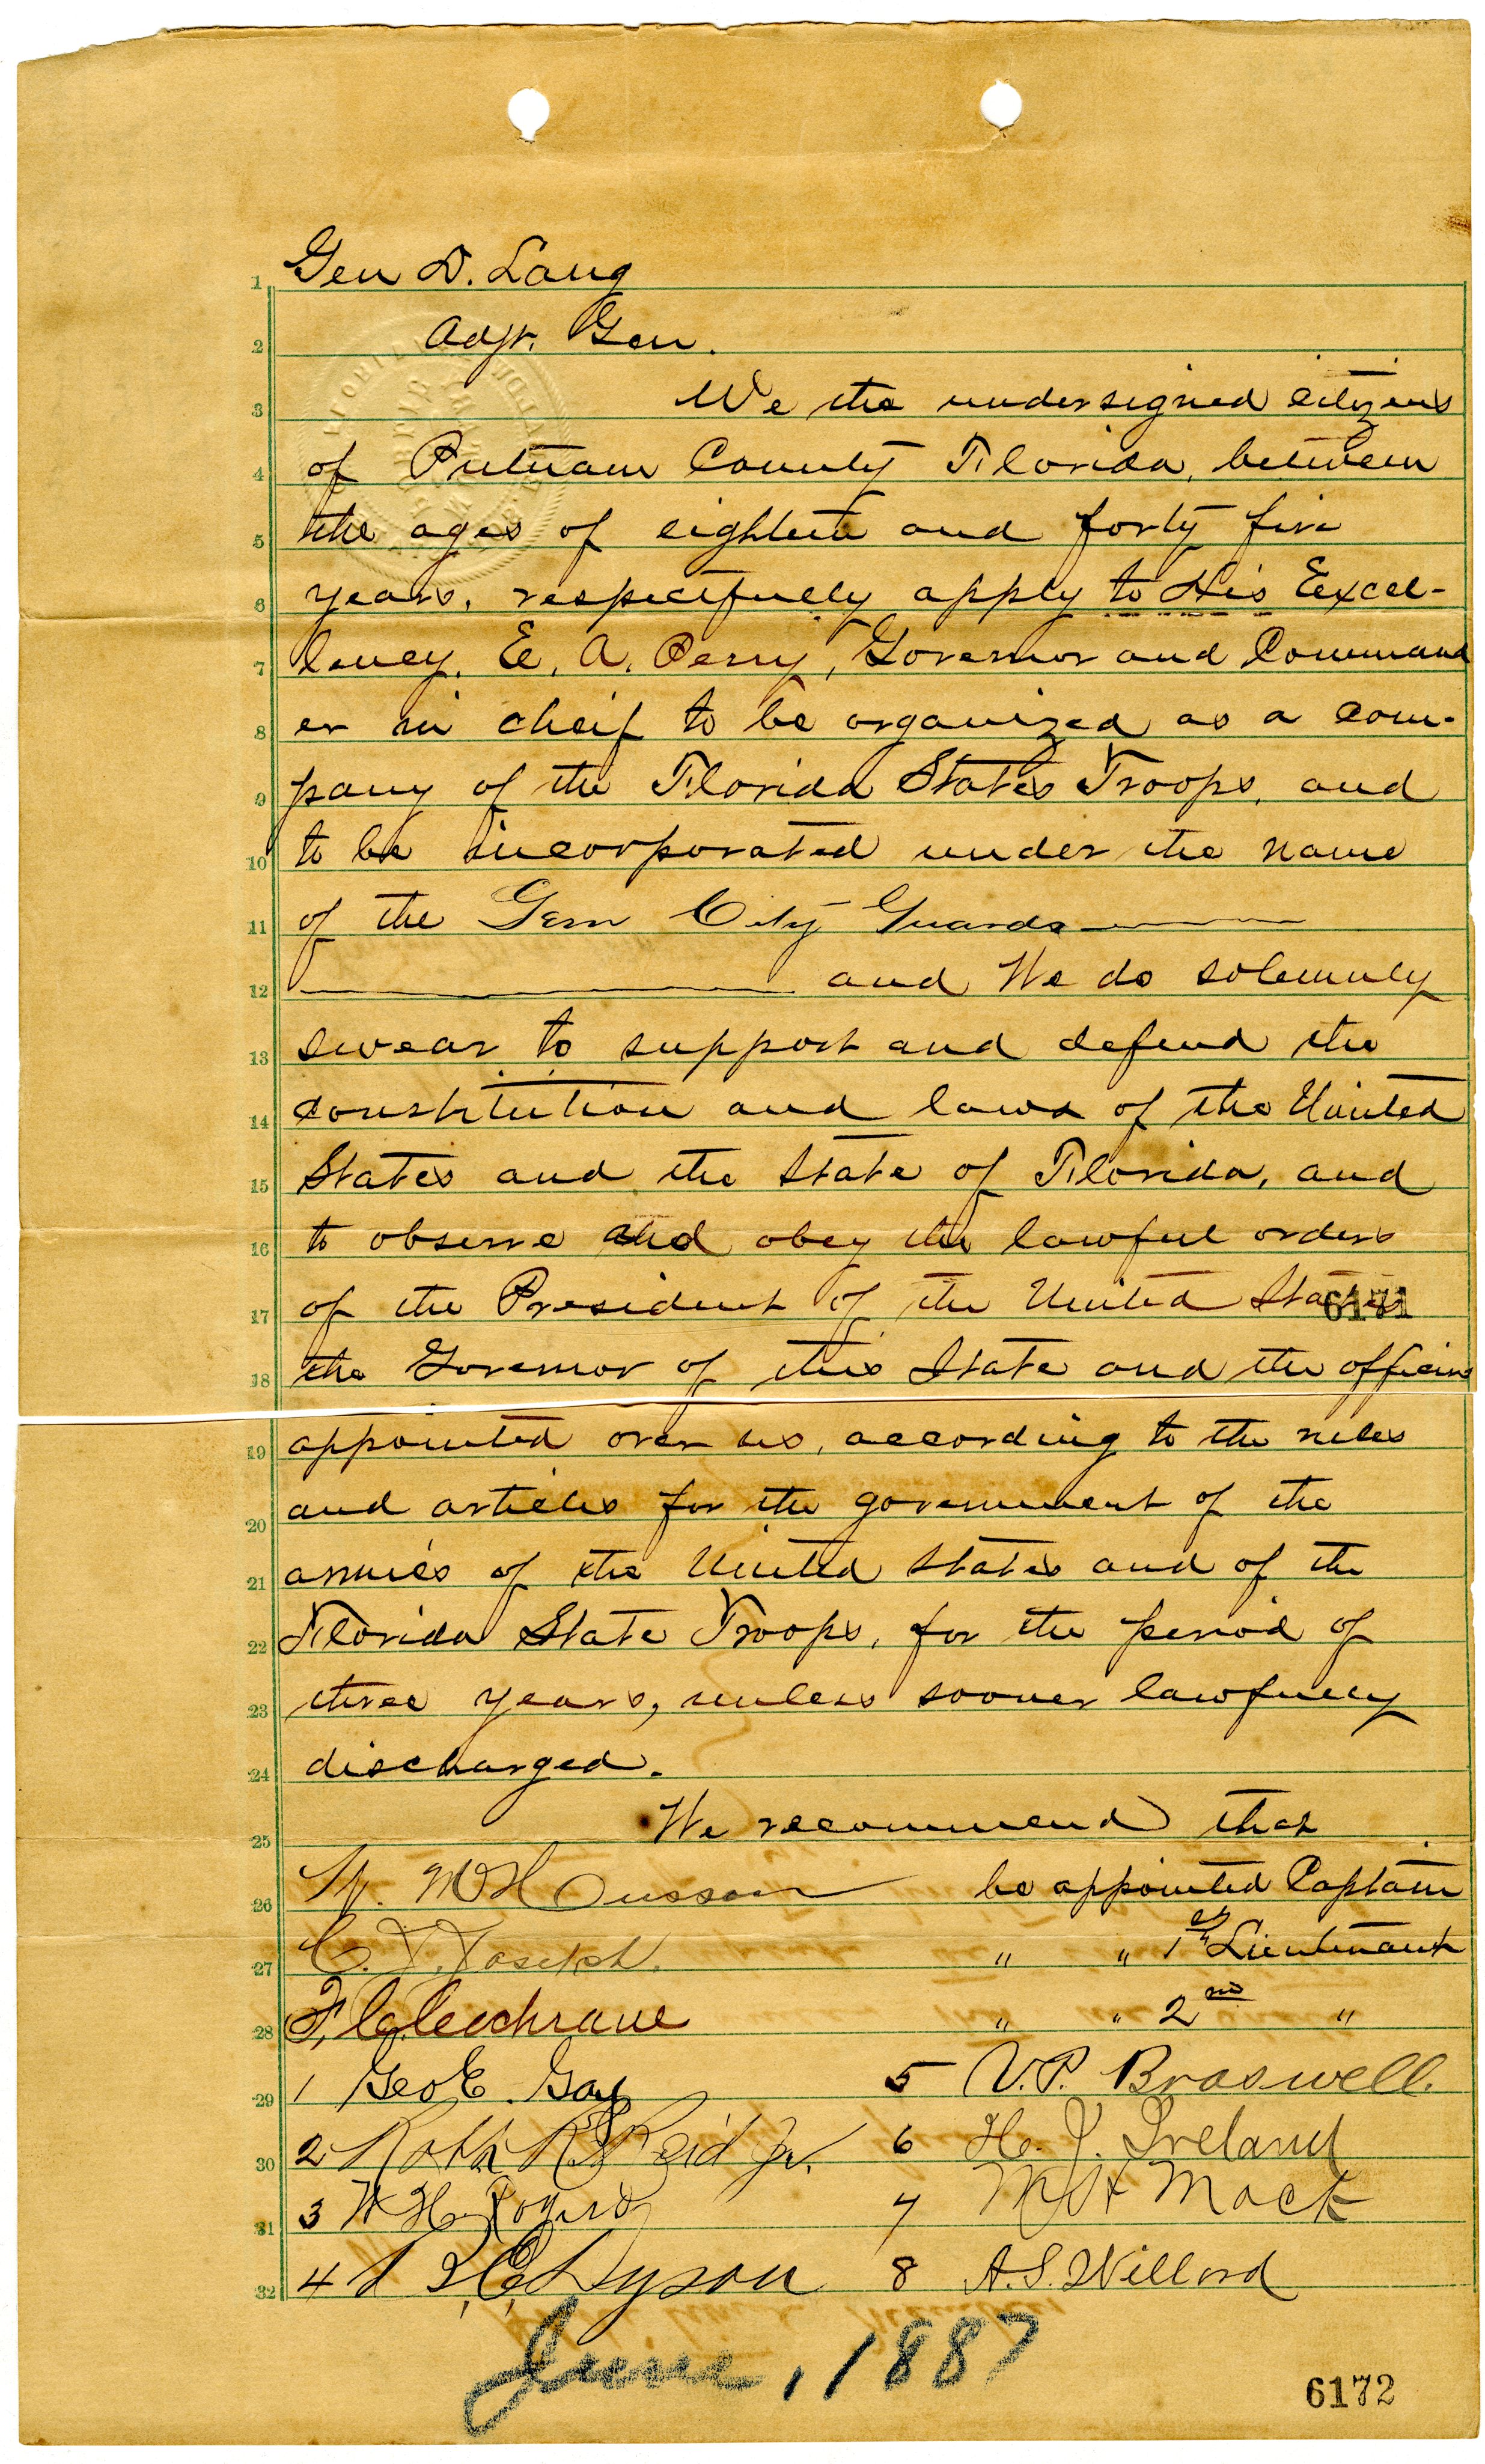 Gen D. Lang
Adjt. Gen.
We the undersigned citizens
of Putnam County Florida, between
the ages of eighteen and forty five
years, respectfully apply to His Excel-
lency, E. A. Perry, Governor and Command
er in cheif to be organized as a com-
pany of the Florida States Troops, and
to be incorporated under the name
of the Gem City Guards
and We do solemnly
swear to support and defend the
constitution and laws of the United
States and the State of Florida, and
to observe and obey the lawful orders
of the President of the United States
6171
the Governor of this State and the officers
appointed over us, according to the rules
and articles for the government of the
armies of the United States and of the
Florida State Troops, for the period of
three years, unless sooner lawfully
discharged.
We recommend that
W. M. Husson be appointed Captain
C. J. Joseph. " " 1st Lieutenant
F. C. Cochrane " " 2nd "
1 Geo E. Gay 5 V. P. Braswell.
2 Robt R Reid Jr. 6 H. J. Ireland
3 W H Rogers 7 M H Mack
4 Dyson 8 A. S. Willard
June, 1887
6172
1
2
3
4
5
6
7
8
9
10
11
12
13
14
15
16
17
18
19
20
21
22
23
24
25
26
27
28
29
30
31
32